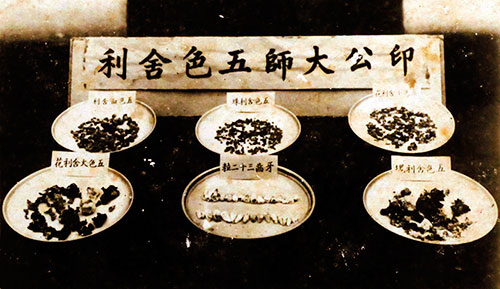 印公大師五色舍利
舍利花
五色舍利珠
五色血舍利
五色舍利塊
牙齒三十二粒
五色大舍利花